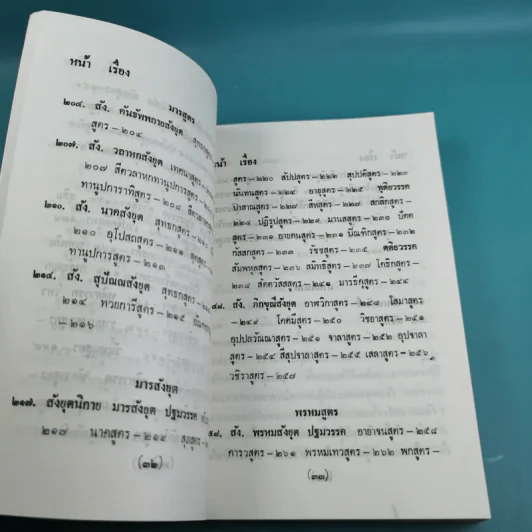 หน้า เรื่อง
มารสูตร
๒๐๔. สัง. คันธัพพกายสังยุต
สูตร–๒๐๔
๒๐๗. สัง. วลาหกสังยุต เทศนาสูตร–
๒๐๗ สีตวลาหกทานูปการสูตร–๒๐๘
ทานูปการาทิสูตร–๒๐๘
๒๑๐. สัง. นาคสังยุต สุทธกสูตร–
๒๑๐ อุโปสถสูตร–๒๑๑
ทานูปการสูตร–๒๑๓
๒๑๔. สัง. สุปัณณสังยุต สุทธกสูตร–
๒๑๔ ทวยการีสูตร–๒๑๕
–๒๑๖
มารสังยุต
๒๑๗. สังยุตนิกาย มารสังยุต ปฐมวรรค
๒๑๗ นาคสูตร–๒๑๘ สุภสูตร–
(๓๒)
หน้า เรื่อง
สูตร–๒๒๐ สัปปสูตร–๒๒๒ สุปปติสูตร–๒๒๓
นันทนสูตร–๒๒๔ อายุสูตร–๒๒๕ ทุติยวรรค
ปาสาณสูตร–๒๒๗ สีหสูตร–๒๒๘ สกลิกสูตร–
๒๒๙ ปฏิรูปสูตร–๒๓๐ มานสสูตร–๒๓๐ ปัตต
สูตร–๒๓๑ อายตนสูตร–๒๓๑ ปิณฑิกสูตร–๒๓๒
กัสสกสูตร–๒๓๓ รัชชสูตร–๒๓๕ ตติยวรรค
สัมพหุลสูตร–๒๓๖ สมิทธิสูตร–๒๓๗ โคธิกสูตร–
๒๓๘ สัตตวัสสสูตร–๒๔๑ มารธีตุสูตร–๒๔๔
๕๘. สัง. ภิกขุณีสังยุต อาฬวิกาสูตร–๒๔๘ โสมาสูตร
–๒๔๙ โคตมีสูตร–๒๕๐ วิชยาสูตร–๒๕๑
อุปปลวัณณาสูตร–๒๕๑ จาลาสูตร–๒๕๒ อุปจาลา
สูตร–๒๕๔ สีสุปจาลาสูตร–๒๕๕ เสลาสูตร–๒๕๖
วชิราสูตร–๒๕๗
พรหมสูตร
๕๘. สัง. พรหมสังยุต ปฐมวรรค อายาจนสูตร–๒๕๘
คารวสูตร–๒๖๑ พรหมเทวสูตร–๒๖๒ พกสูตร–
(๓๓)